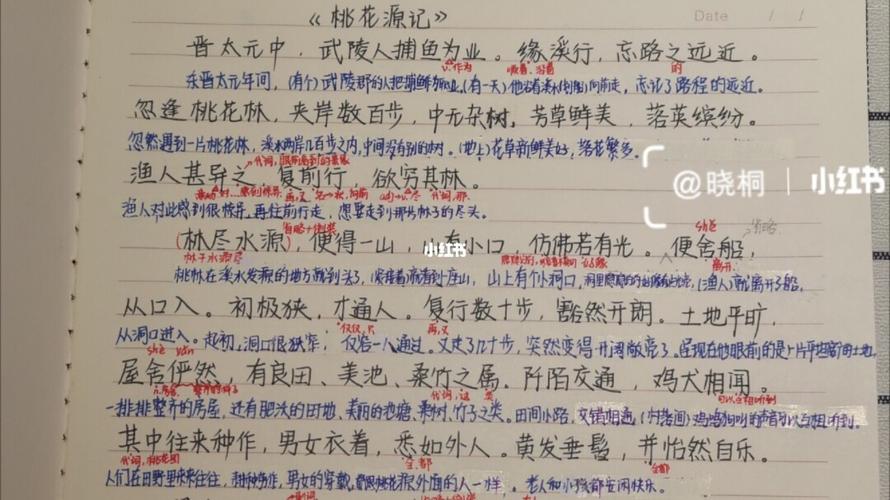 《桃花源记》
Date / /
晋太元中，武陵人捕鱼为业。缘溪行，忘路之远近。
作为 顺着、沿着 的
东晋太元年间，(有个)武陵郡的人把捕鱼作为职业，(有一天)他沿着溪水(划船)向前走，忘记了路程的远近。
忽逢桃花林，夹岸数百步，中无杂树，芳草鲜美，落英缤纷。
忽然遇到一片桃花林，溪水两岸几百步之内，中间没有别的树。(地上)花草新鲜美好，落花繁多。
代词，
渔人甚异之，复前行，欲穷其林。
再，又 代词，那
渔人对此感到很惊异，再往前行走，想要走到那片林子的尽头。
@晓桐 | 小红书
shě
省略
(林尽水源)，便得一山，山有小口，仿佛若有光。便舍船，
小红书
林子水源尽 离开
桃林在溪水发源的地方就到头了，山上有个小洞口，(渔人)就离开了船，
从口入。初极狭，才通人。复行数十步，豁然开朗。土地平旷，
仅仅，只 再，又
从洞口进入。起初，洞口很狭窄；仅容一人通过。又走了几十步，突然变得开阔敞亮了。呈现在他眼前的是一片平坦宽
shè yǎn
屋舍俨然，有良田、美池、桑竹之属。阡陌交通，鸡犬相闻。
代词，这 可以互相听到
一排排整齐的房屋，还有肥沃的田地、美丽的池塘、桑树、竹子之类。田间小路，交错相通，
其中往来种作，男女衣着，悉如外人。黄发垂髫，并怡然自乐。
代词，桃花园 全，都 全都
人们在田野里来来往往，耕种劳作，男女的穿戴，外面的人一样。老人和小孩都安闲快乐。